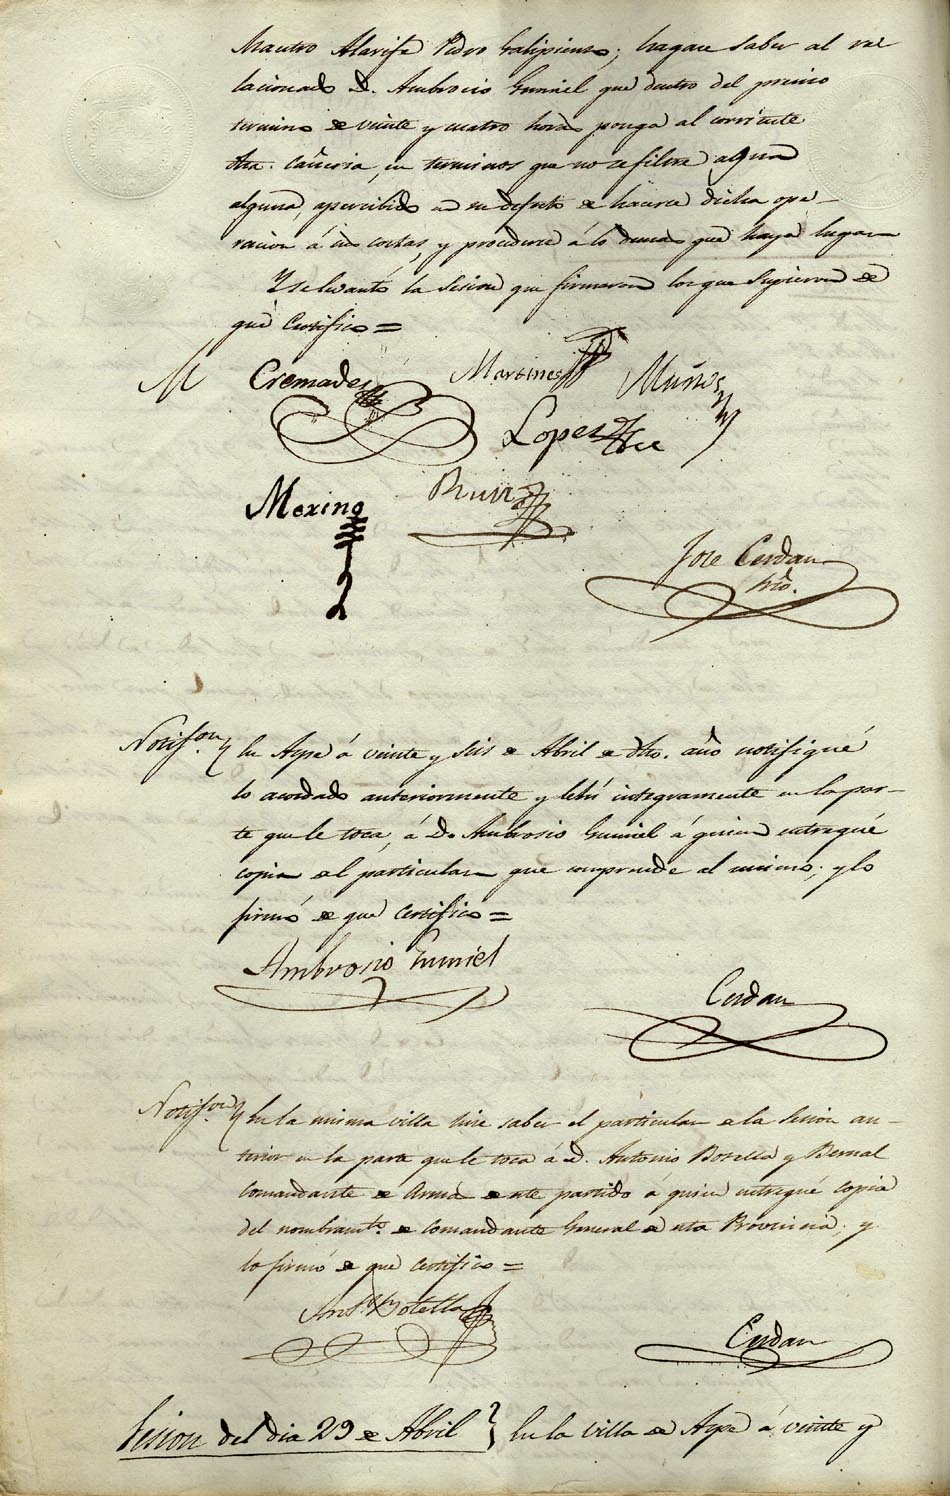 Maestro Alarife Pedro Galipienso; hagase saber al re
lacionado D. Ambrocio Gumiel que dentro del preciso
termino de veinte y cuatro horas ponga al corriente
dha. cañeria, en terminos que no se filtre agua
alguna, apercibido en su defecto de hacerse dicha ope-
racion á sus costas, y procederse á lo demas que haya lugar
Y se levantó la Sesion que firmaron los que supieron de
que Certifico =
M Cremades Martines Muños
Lopez
Merino Ruiz
Jose Cerdan
srio.
Notifon. En Aspe á veinte y seis de Abril de dho. año notifiqué
lo acordado anteriormente y lehí integramente en la par-
te que le toca, á Dn. Ambrosio Gumiel á quien entregué
copia del particular que comprende al mismo; y lo
firmó de que Certifico =
Ambrosio Gumiel
Cerdan
Notifon. En la misma villa hise saber el particular de la Sesion an-
terior en la parte que le toca á D. Antonio Botella y Bernal
Comandante de Arma de este partido á quien entregué copia
del nombramto. de Comandante General de esta Provincia; y
lo firmó de que certifico =
Anto. Botella
Cerdan
Sesion del dia 29 de Abril En la Villa de Aspe á veinte y